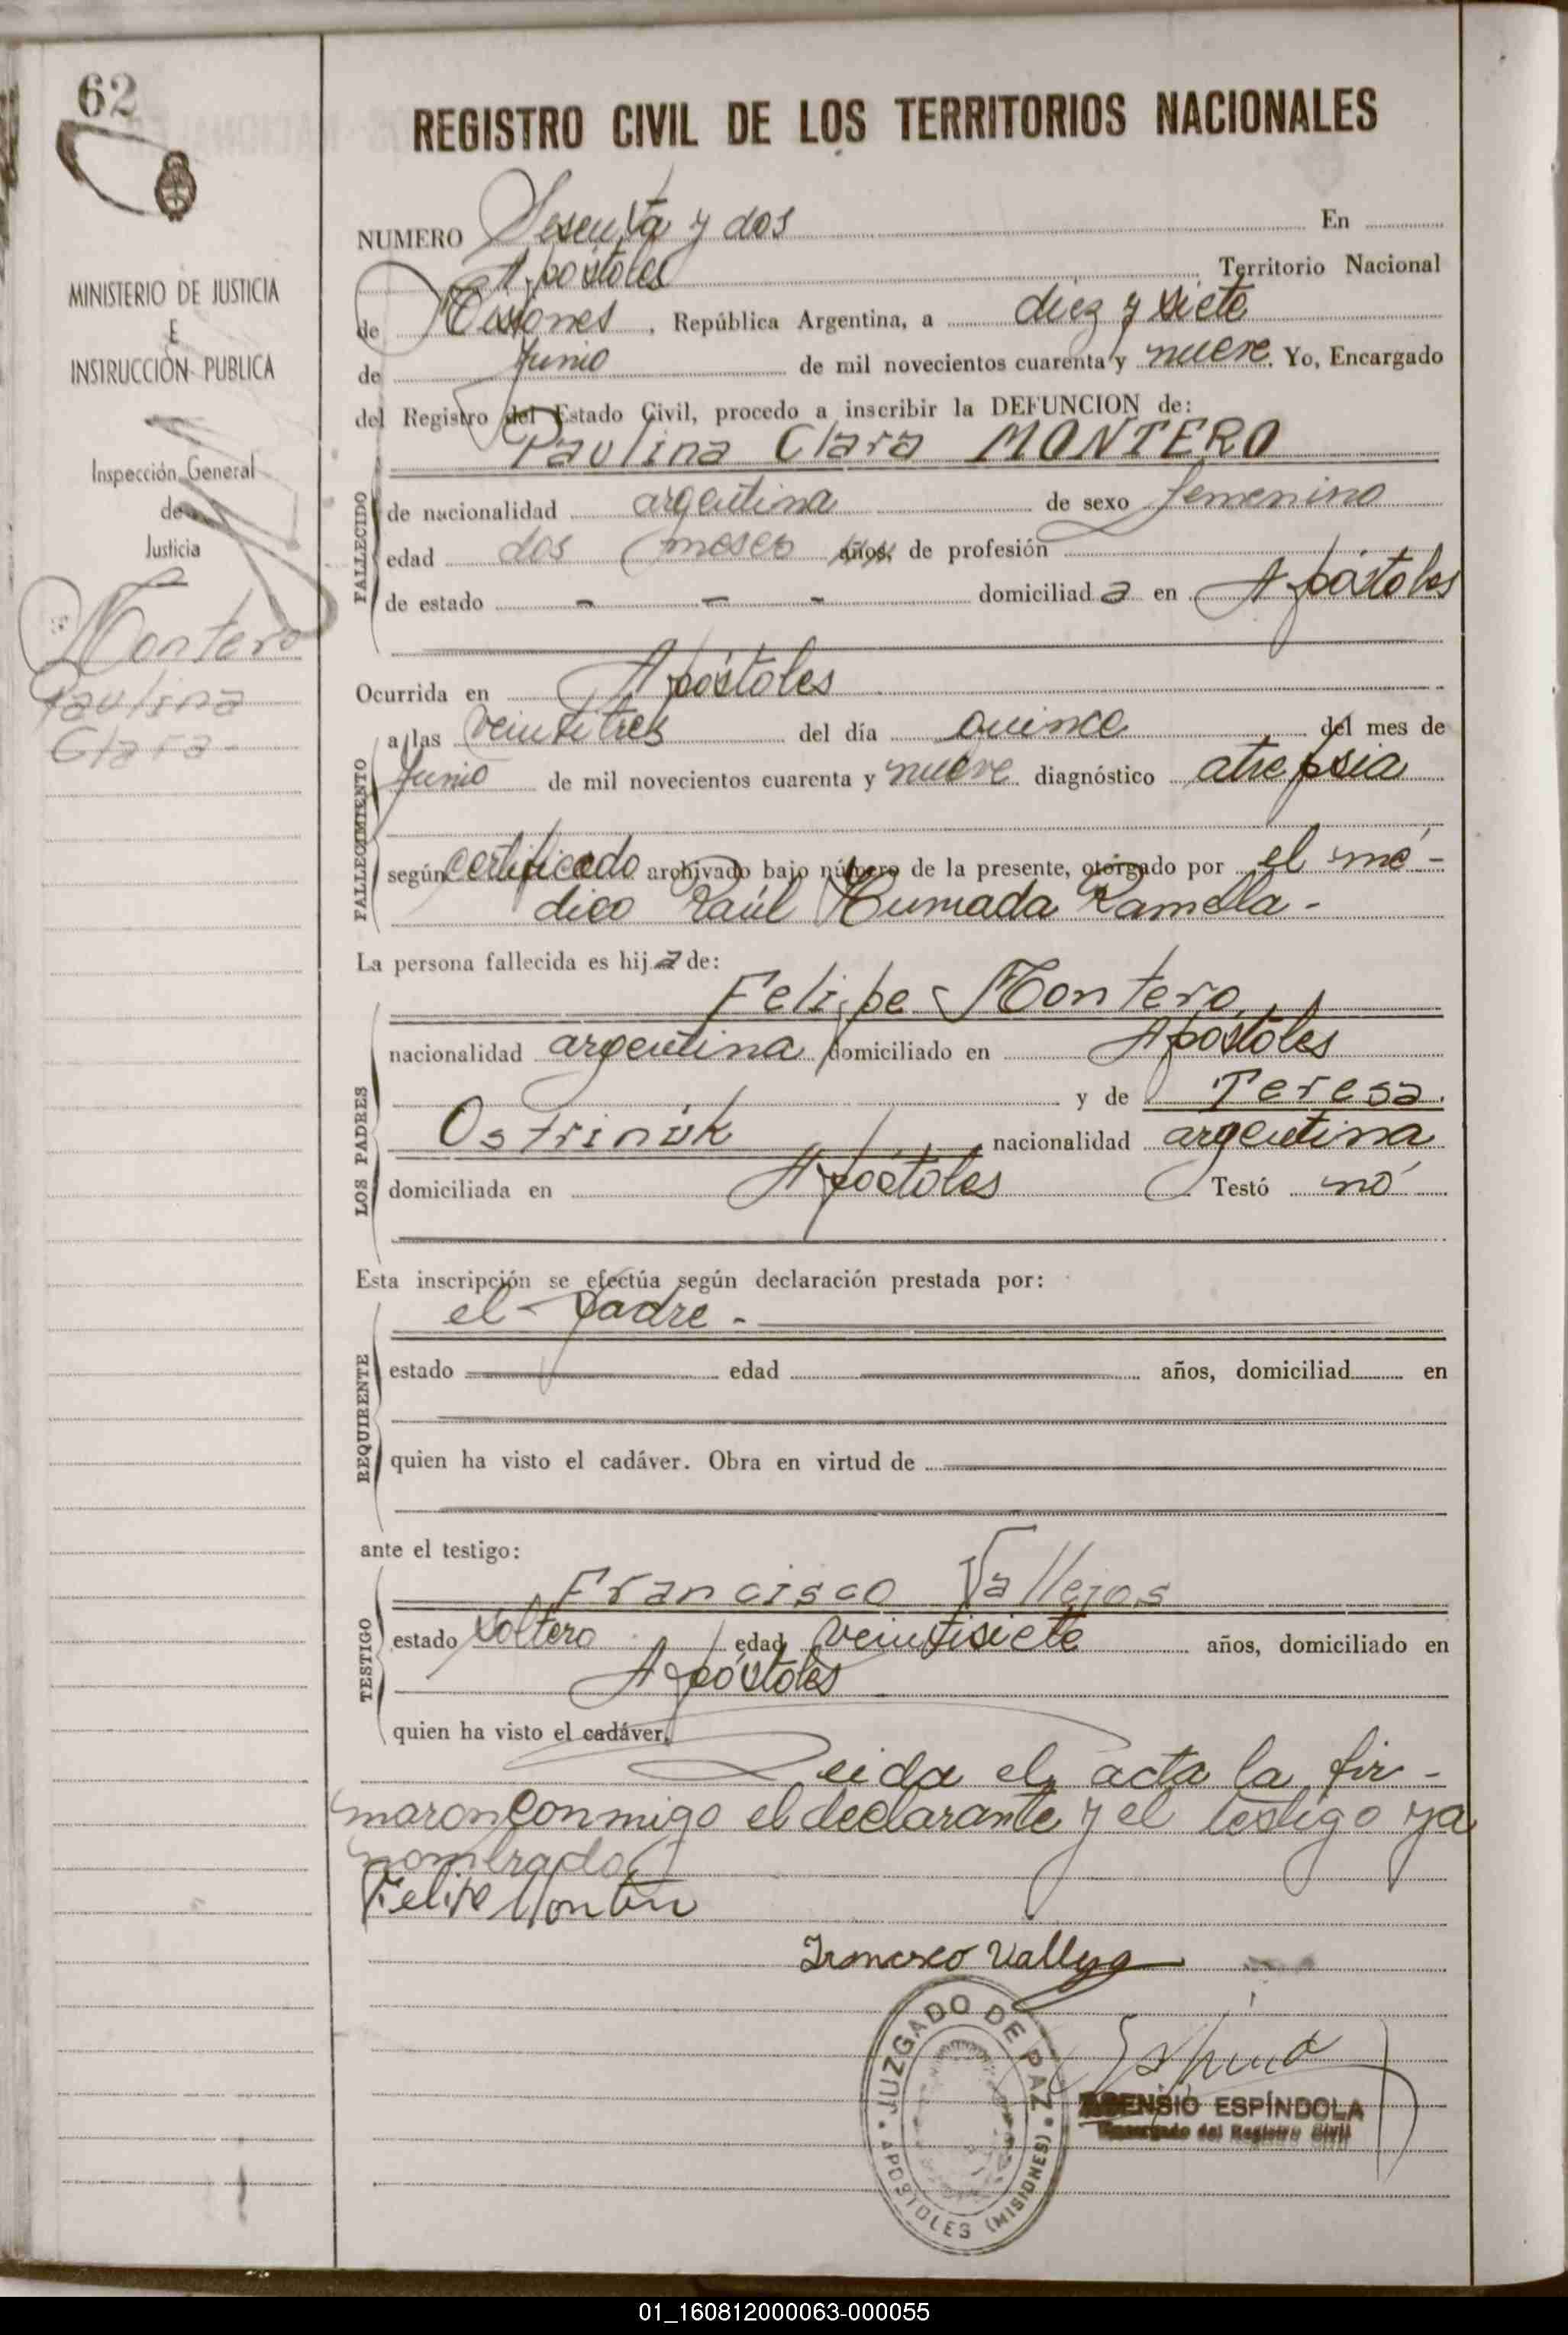 62
MINISTERIO DE JUSTICIA
E
INSTRUCCIÓN PUBLICA
Inspección General
de
Justicia
Montero
Paulina
Clara
REGISTRO CIVIL DE LOS TERRITORIOS NACIONALES
NUMERO Sesenta y dos En
Apóstoles Territorio Nacional
de Misiones, República Argentina, a diez y siete
de Junio de mil novecientos cuarenta y nueve. Yo, Encargado
del Registro del Estado Civil, procedo a inscribir la DEFUNCION de:
Paulina Clara MONTERO
FALLECIDO
de nacionalidad argentina de sexo femenino
edad dos meses años, de profesión
de estado - - - domiciliada en Apóstoles
Ocurrida en Apóstoles
FALLECIMIENTO
a las veintitres del día quince del mes de
Junio de mil novecientos cuarenta y nueve diagnóstico atrepsia
según certificado archivado bajo número de la presente, otorgado por el mé-
dico Raúl Humada Ramella-
La persona fallecida es hija de:
LOS PADRES
Felipe Montero
nacionalidad argentina domiciliado en Apóstoles
y de Teresa
Ostrinúk nacionalidad argentina
domiciliada en Apóstoles. Testó nó
Esta inscripción se efectúa según declaración prestada por:
REQUIRENTE
el padre -
estado edad años, domiciliad en
quien ha visto el cadáver. Obra en virtud de
ante el testigo:
TESTIGO
Francisco Vallejos
estado soltero edad veintisiete años, domiciliado en
Apóstoles
quien ha visto el cadáver.
Leida el acta la fir-
maron conmigo el declarante y el testigo ya
nombrado
Felipe Montero
Francisco Vallejo
JUZGADO DE PAZ
APOSTOLES (MISIONES)
ASENSIO ESPÍNDOLA
Encargado del Registro Civil
01_160812000063-000055